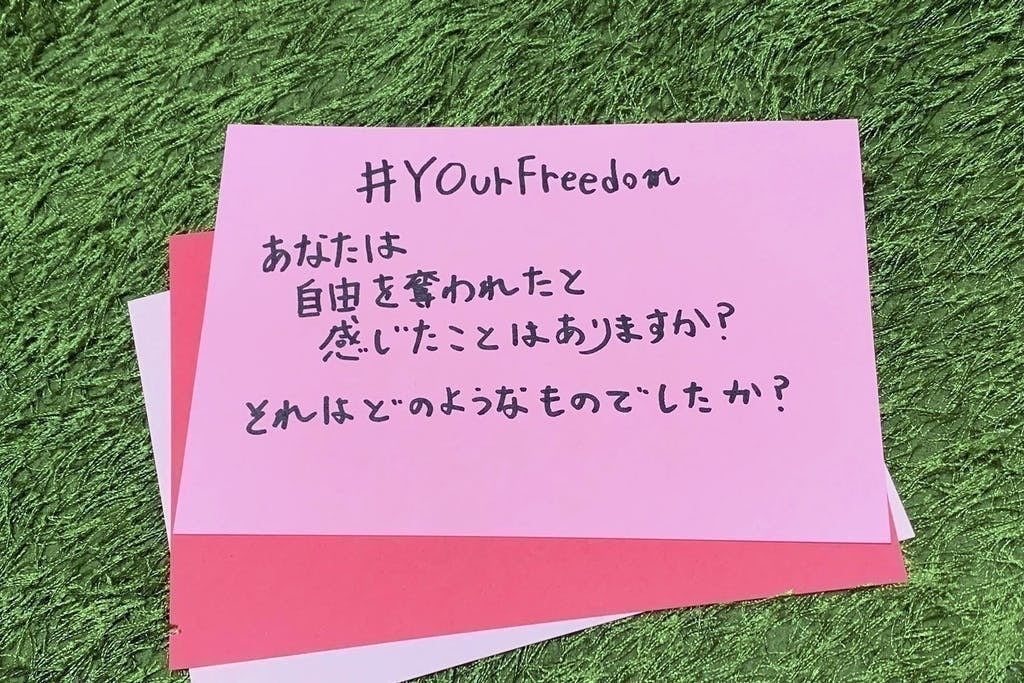 #YOurFreedom
あなたは
自由を奪われたと
感じたことはありますか?
それはどのようなものでしたか?